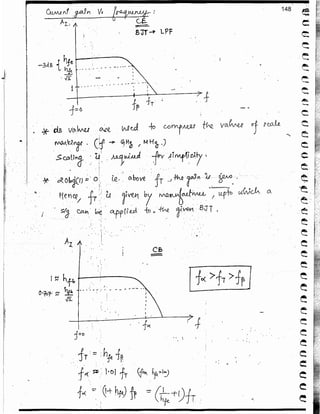 148
Current gain Vs frequency :
AI
CE
BJT → LPF
-3dB
hfe
hfe
√2
1
f=0
fβ
fT
f
* dB values are used to compress the values of scale
markings. (f → GHz, MHz.)
Scaling is required for simplicity.
* 20 log(1) = 0 ie. above fT, the gain is zero.
Hence, fT is given by manufacturer, upto which a
sig can be applied to the given BJT.
AI
CB
1 ≅ hfb
hfb
√2
f=0
fα
f
fα > fT > fβ
fT = hfe fβ
fα = (1+hfe) fβ = (1/hfe +1) fT